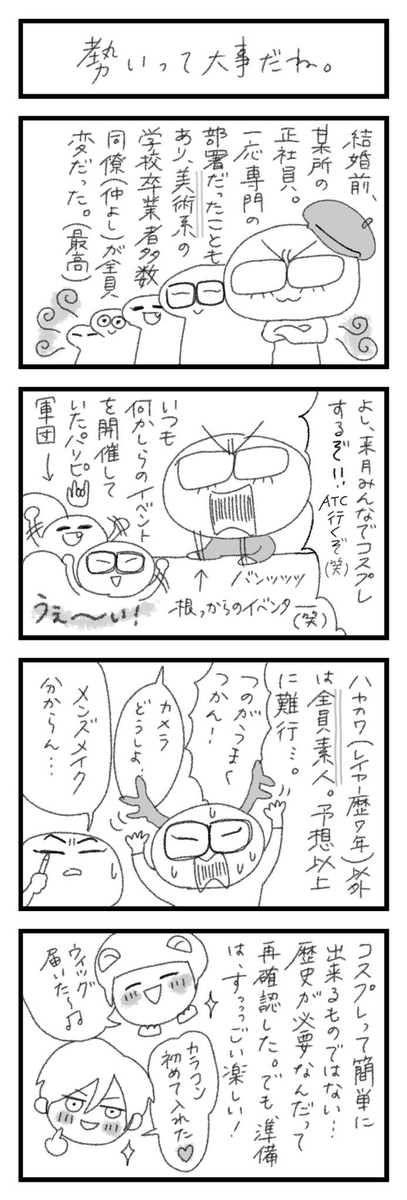 勢いって大事だね。
結婚前、
某所の
正社員。
一応専門の
部署だったことも
あり、美術系の
学校卒業者多数
同僚(仲よし)が全員
変だった。(最高)
よし、来月みんなでコスプレ
するぞ!!
ATC
行くぞ
(笑)
バンッッッ
根っからのイベンター
(笑)
いつも
何かしらのイベント
を開催して
いたパリピ
軍団→
うぇ〜い!
ハヤカワ(レイヤー歴7年)以外
は全員素人。予想以上
に難行…。
つのが、つま〜
つかん!
カメラ
どうしよ…
メンズメイク
分からん…
コスプレって簡単に
出来るものではない…
歴史が必要なんだって
再確認した。でも、準備
は、すっっっごい楽しい!
ウィッグ
届いた〜♫
カラコン
初めて入れた♡